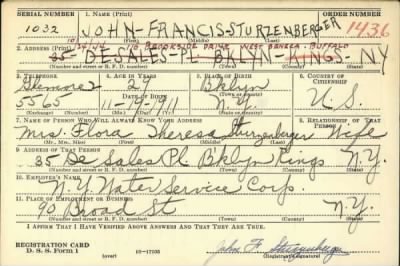 SERIAL NUMBER 1. NAME (Print) ORDER NUMBER
1032 JOHN-FRANCIS-STURZENBERGER 1436
(First) (Middle) (Last)
BROOKSIDE DRIVE WEST SENECA - BUFFALO
2. ADDRESS (Print)
35-DE-SALES-PL-BKLYN-KINGS-NY
(Number and street or R. F. D. number) (Town) (County) (State)
3. TELEPHONE 4. AGE IN YEARS 5. PLACE OF BIRTH 6. COUNTRY OF CITIZENSHIP
Glenmore 2 Bklyn
DATE OF BIRTH
5565 11-19-1911 N.Y. U.S.
(Exchange) (Number) (Mo.) (Day) (Yr.) (State or country)
7. NAME OF PERSON WHO WILL ALWAYS KNOW YOUR ADDRESS 8. RELATIONSHIP OF THAT PERSON
Mrs. Flora Theresa Sturzenberger Wife
(Mr., Mrs., Miss) (First) (Middle) (Last)
9. ADDRESS OF THAT PERSON
35 De Sales Pl. Bklyn Kings N.Y.
(Number and street or R. F. D. number) (Town) (County) (State)
10. EMPLOYER'S NAME
N.Y. Water Service Corp.
11. PLACE OF EMPLOYMENT OR BUSINESS
90 Broad St N.Y.
(Number and street or R. F. D. number) (Town) (County) (State)
I AFFIRM THAT I HAVE VERIFIED ABOVE ANSWERS AND THAT THEY ARE TRUE.
REGISTRATION CARD
D. S. S. Form 1 (over) 16-17105 John F. Sturzenberger